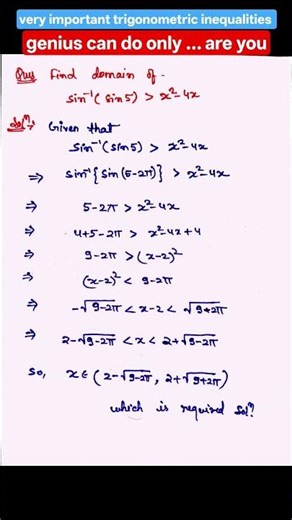 very important trigonometric inequalities
genius can do only ... are you
Ques Find domain of -
sin⁻¹(sin5) > x²-4x
Solⁿ:→ Given that
sin⁻¹(sin5) > x²-4x
⇒ sin⁻¹{sin(5-2π)} > x²-4x
⇒ 5-2π > x²-4x
⇒ 4+5-2π > x²-4x+4
⇒ 9-2π > (x-2)²
⇒ (x-2)² < 9-2π
⇒ -√9-2π < x-2 < √9+2π
⇒ 2-√9-2π < x < 2+√9-2π
So, x∈(2-√9-2π, 2+√9+2π)
which is required solⁿ.